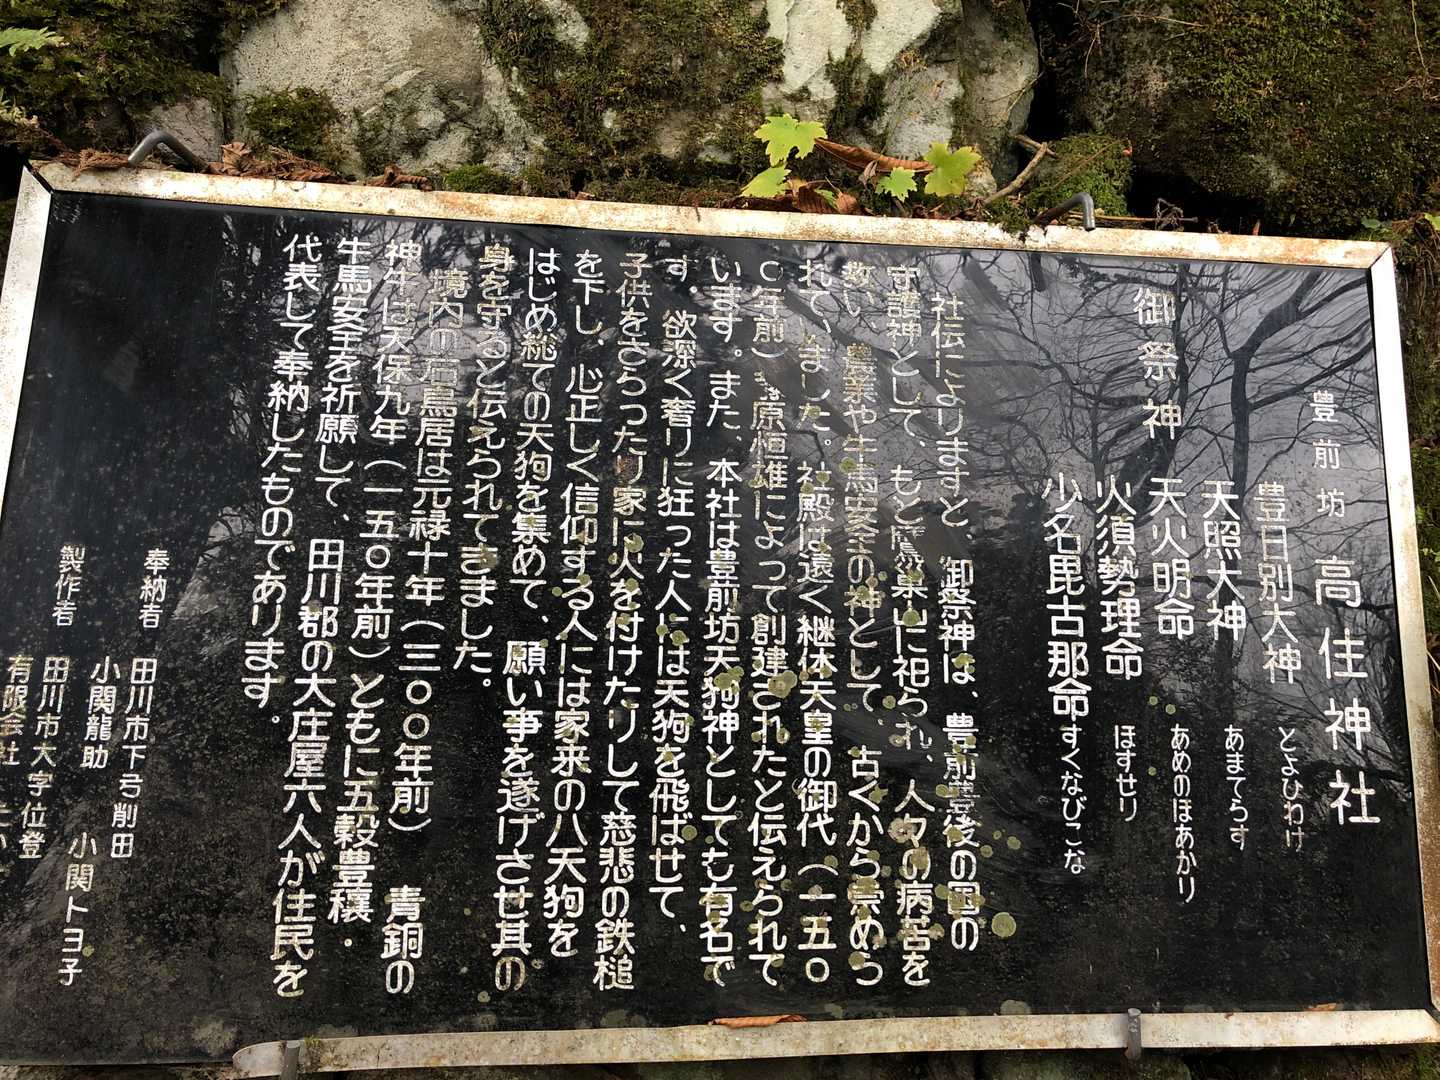 豊前坊 高住神社
御祭神
豊日別大神 とよひわけ
天照大神 あまてらす
天火明命 あめのほあかり
火須勢理命 ほすせり
少名毘古那命 すくなびこな
社伝によりますと、御祭神は、豊前豊後の国の
守護神として、もと鷹巣山に祀られ、人々の病苦を
救い、農業や牛馬安全の神として、古くから崇めら
れていました。社殿は遠く継体天皇の御代(一五〇
〇年前) 原恒雄によって創建されたと伝えられて
います。また、本社は豊前坊天狗神としても有名で
す。欲深く奢りに狂った人には天狗を飛ばせて、
子供をさらったり家に火を付けたりして慈悲の鉄槌
を下し、心正しく信仰する人には家来の八天狗を
はじめ総ての天狗を集めて、願い事を遂げさせ其の
身を守ると伝えられてきました。
境内の石鳥居は元禄十年(三〇〇年前) 青銅の
神牛は天保九年(一五〇年前)ともに五穀豊穣・
牛馬安全を祈願して、田川郡の大庄屋六人が住民を
代表して奉納したものであります。
奉納者 田川市下弓削田
小関龍助 小関トヨ子
製作者 田川市大字位登
有限会社